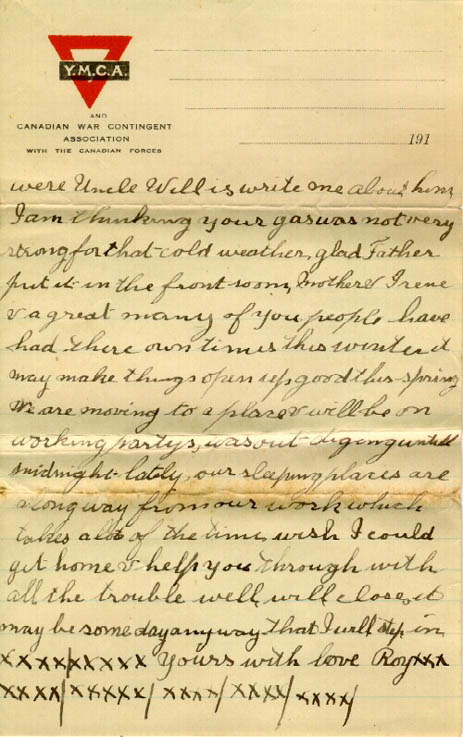 Y.M.C.A.
AND
CANADIAN WAR CONTINGENT
ASSOCIATION
WITH THE CANADIAN FORCES
191
were Uncle Will is write me about him
I am thinking your gas was not very
strong for that cold weather, glad Father
put it in the front room, Mother & Irene
& a great many of you people have
had there own times this winter it
may make things open up good this spring
We are moving to a place & will be on
working partys, was out diging untill
midnight lately, our sleeping places are
a long way from our work which
takes a lot of the time wish I could
get home & help you through with
all the trouble well will close, it
may be some day anyway that I will step in
xxxx/xxxxx Yours with love Roy xxx
xxxx/xxxxx/xxxx/xxxx/xxxx/